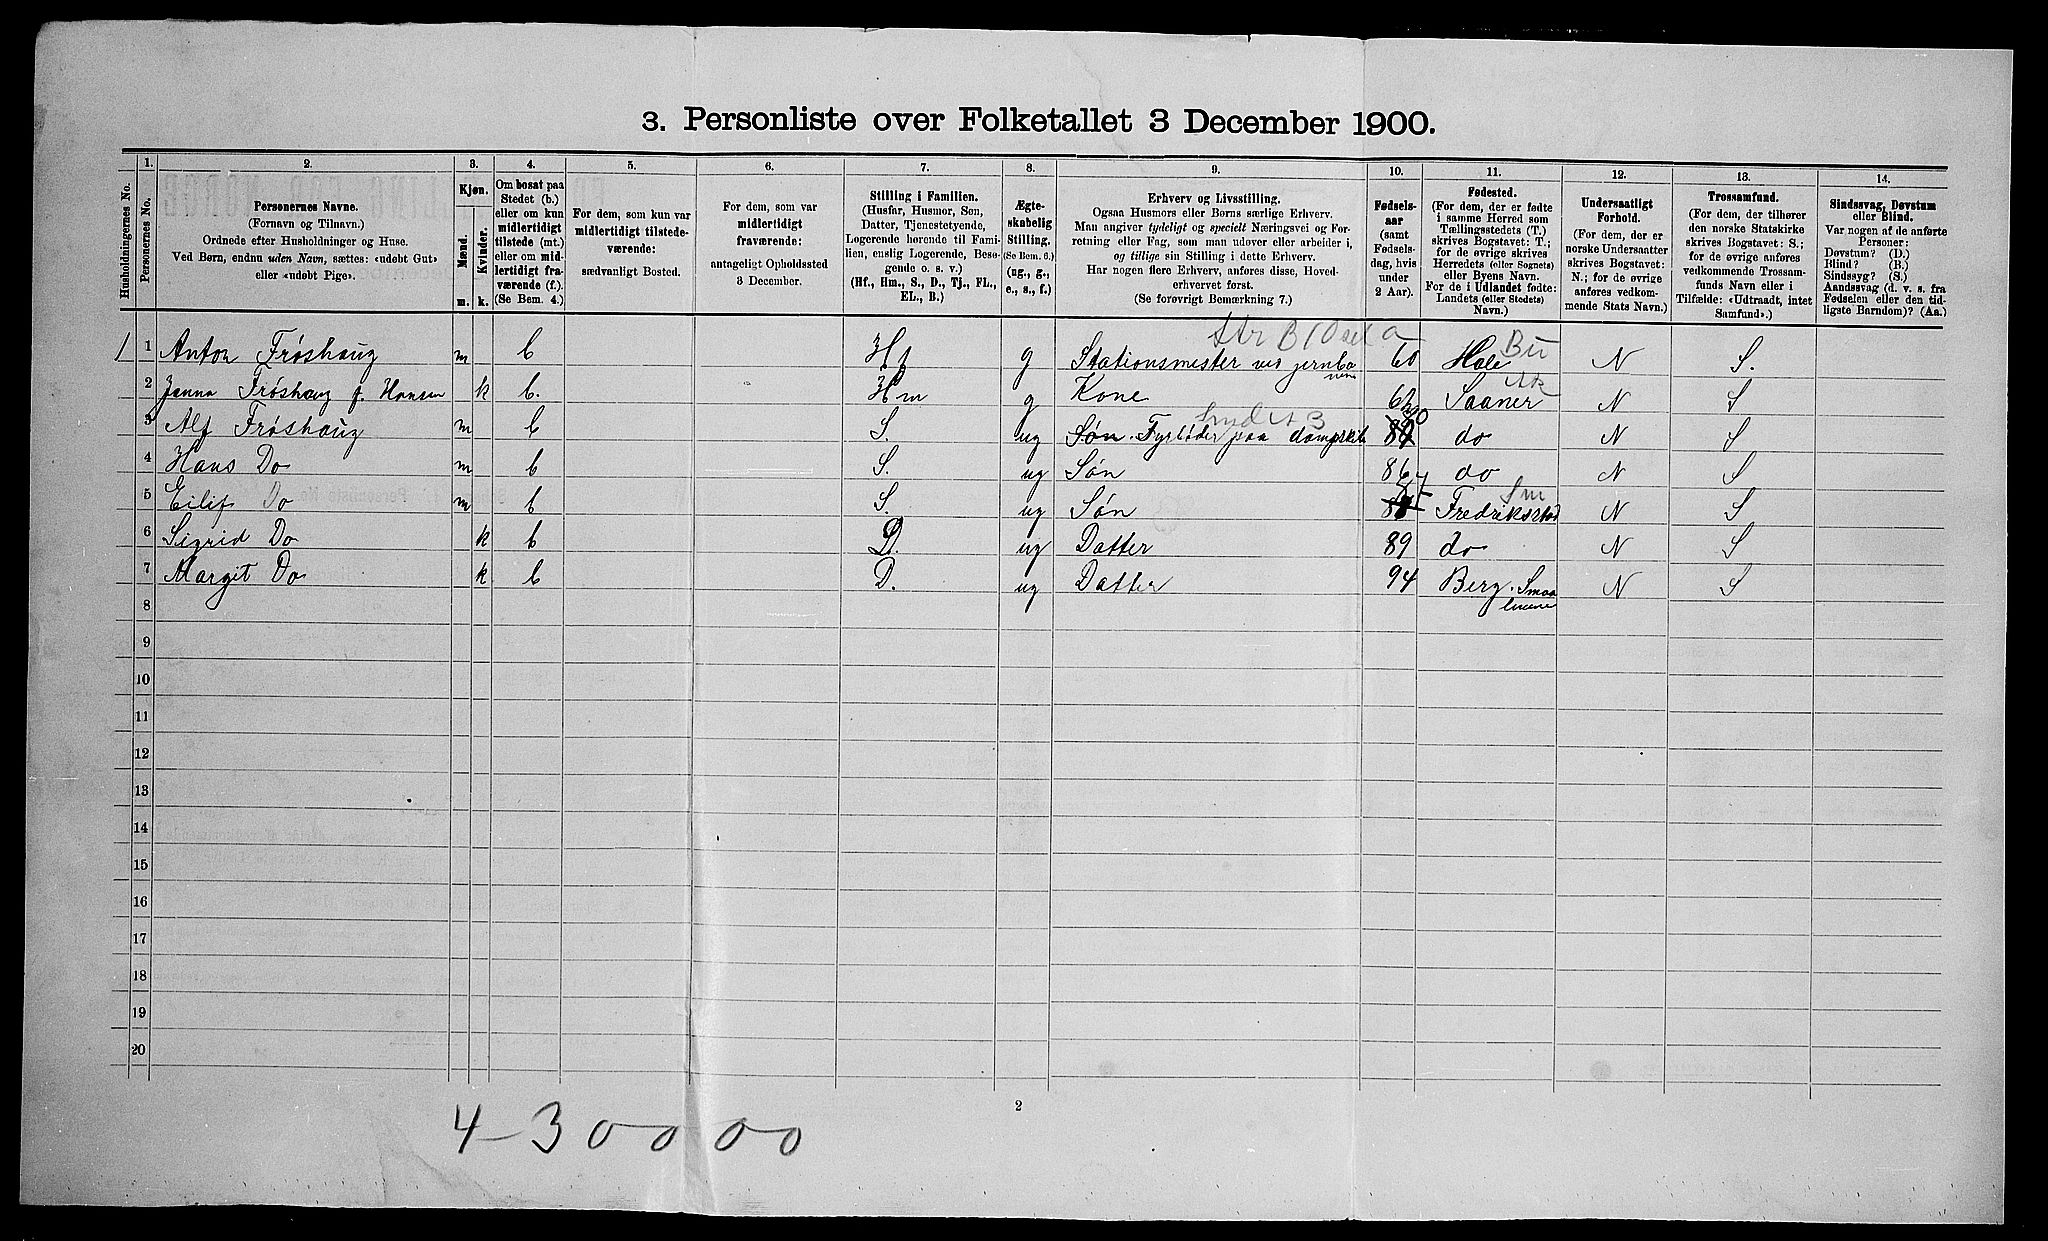 3. Personliste over Folketallet 3 December 1900.
1. 2. 3. 4. 5. 6. 7. 8. 9. 10. 11. 12. 13. 14.
Husholdningernes No.
Personernes No.
Personernes Navne.
(Fornavn og Tilnavn.)
Ordnede efter Husholdninger og Huse.
Ved Børn, endnu uden Navn, sættes: «udøbt Gut»
eller «udøbt Pige».
Kjøn.
Mænd.
Kvinder.
m. k.
Om bosat paa
Stedet (b.)
eller om kun
midlertidigt
tilstede (mt.)
eller om mid-
lertidigt fra-
værende (f.).
(Se Bem. 4.)
For dem, som kun var
midlertidigt tilstede-
værende:
sædvanligt Bosted.
For dem, som var
midlertidigt
fraværende:
antageligt Opholdssted
3 December.
Stilling i Familien.
(Husfar, Husmor, Søn,
Datter, Tjenestetyende,
Logerende hørende til Fami-
lien, enslig Logerende, Besø-
gende o. s. v.)
(Hf., Hm., S., D., Tj., FL.,
EL., B.)
Ægte-
skabelig
Stilling.
(Se Bem. 6.)
(ug., g.,
e., s., f.)
Erhverv og Livsstilling.
Ogsaa Husmors eller Børns særlige Erhverv.
Man angiver tydeligt og specielt Næringsvei og For-
retning eller Fag, som man udøver eller arbeider i,
og tillige sin Stilling i dette Erhverv.
Har nogen flere Erhverv, anføres disse, Hoved-
erhvervet først.
(Se forøvrigt Bemærkning 7.)
Fødsels-
aar
(samt
Fødsels-
dag, hvis
under
2 Aar).
Fødested.
(For dem, der er fødte
i samme Herred som
Tællingsstedets (T.)
skrives Bogstavet: T.;
for de øvrige skrives
Herredets (eller Sognets)
eller Byens Navn.
For de i Udlandet fødte:
Landets (eller Stedets)
Navn.)
Undersaatligt
Forhold.
(For dem, der er
norske Undersaatter
skrives Bogstavet:
N.; for de øvrige
anføres vedkom-
mende Stats Navn.)
Trossamfund.
(For dem, der tilhører
den norske Statskirke
skrives Bogstavet: S.;
for de øvrige anføres
vedkommende Trossam-
funds Navn eller i
Tilfælde: «Udtraadt, intet
Samfund».)
Sindssvag, Døvstum
eller Blind.
Var nogen af de anførte
Personer:
Døvstum? (D.)
Blind? (B.)
Sindssyg? (S.)
Aandssvag (d. v. s. fra
Fødselen eller den tid-
ligste Barndom)? (Aa.)
1 1 Anton Frøshaug m b Hf g Stationsmester ved jernba 60 Hole Bu N S.
nene
2 Janna Frøshaug f. Hansen k b. Hm g Kone 62 Saaner Ak N S
3 Alf Frøshaug m b S. ug Søn. Fyrbøder paa dampskib do N S
4 Hans Do m b S. ug Søn 86 do N S
5 Eilif Do m b S. ug Søn Fredrikstad Sm N S
6 Sigrid Do k b D. ug Datter 89 do N S
7 Margit Do k b D. ug Datter 94 Berg. Smaa
lenene N S
8
9
10
11
12
13
14
15
16
17
18
19
20
2
4-30000